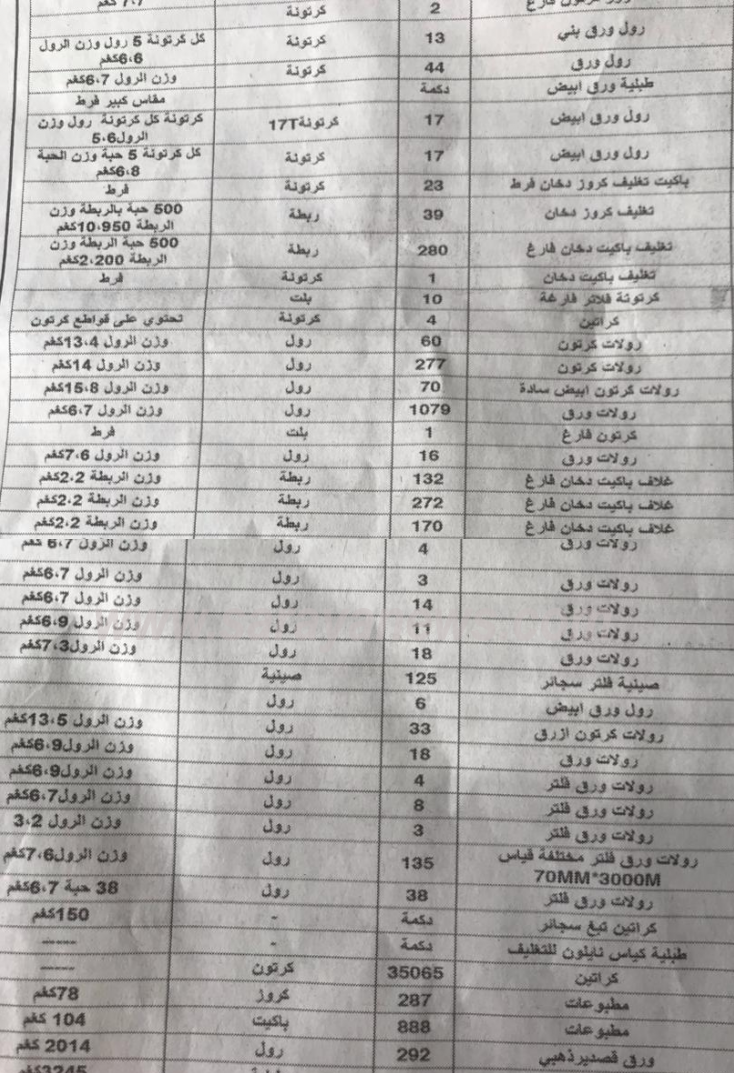 كرتون فارغ 2 كرتونة 7،7 كغم
رول ورق بني 13 كرتونة كل كرتونة 5 رول وزن الرول 6،6كغم
رول ورق 44 كرتونة وزن الرول 6،7كغم
طبلية ورق ابيض دكمة مقاس كبير فرط
رول ورق ابيض 17 كرتونة17T كرتونة كل كرتونة رول وزن الرول5،6
رول ورق ابيض 17 كرتونة كل كرتونة 5 حبة وزن الحبة 6،8كغم
باكيت تغليف كروز دخان فرط 23 كرتونة فرط
تغليف كروز دخان 39 ربطة 500 حبة بالربطة وزن الربطة 10،950كغم
تغليف باكيت دخان فارغ 280 ربطة 500 حبة الربطة وزن الربطة 2،200كغم
تغليف باكيت دخان 1 كرتونة فرط
كرتونة فلاتر فارغة 10 بلت
كراتين 4 كرتونة تحتوي على قواطع كرتون
رولات كرتون 60 رول وزن الرول 13،4كغم
رولات كرتون 277 رول وزن الرول 14كغم
رولات كرتون ابيض سادة 70 رول وزن الرول 15،8كغم
رولات ورق 1079 رول وزن الرول 6،7كغم
كرتون فارغ 1 بلت فرط
رولات ورق 16 رول وزن الرول 7،6كغم
غلاف باكيت دخان فارغ 132 ربطة وزن الربطة 2،2كغم
غلاف باكيت دخان فارغ 272 ربطة وزن الربطة 2،2كغم
غلاف باكيت دخان فارغ 170 ربطة وزن الربطة 2،2كغم
رولات ورق 4 رول وزن الرول 6،7 كغم
رولات ورق 3 رول وزن الرول 6،7كغم
رولات ورق 14 رول وزن الرول 6،7كغم
رولات ورق 11 رول وزن الرول 6،9كغم
رولات ورق 18 رول وزن الرول7،3كغم
صينية فلتر سجائر 125 صينية
رول ورق ابيض 6 رول
رولات كرتون ازرق 33 رول وزن الرول 13،5كغم
رولات ورق 18 رول وزن الرول6،9كغم
رولات ورق فلتر 4 رول وزن الرول6،9كغم
رولات ورق فلتر 8 رول وزن الرول6،7كغم
رولات ورق فلتر 3 رول وزن الرول 3،2
رولات ورق فلتر مختلفة قياس 70MM*3000M 135 رول وزن الرول7،6كغم
رولات ورق فلتر 38 رول 38 حبة 6،7كغم
كراتين تبغ سجائر دكمة - 150كغم
طبلية كياس نايلون للتغليف دكمة - -----
كراتين 35065 كرتون -----
مطبوعات 287 كروز 78كغم
مطبوعات 888 باكيت 104 كغم
ورق قصديرذهبي 292 رول 2014 كغم
3245كغم